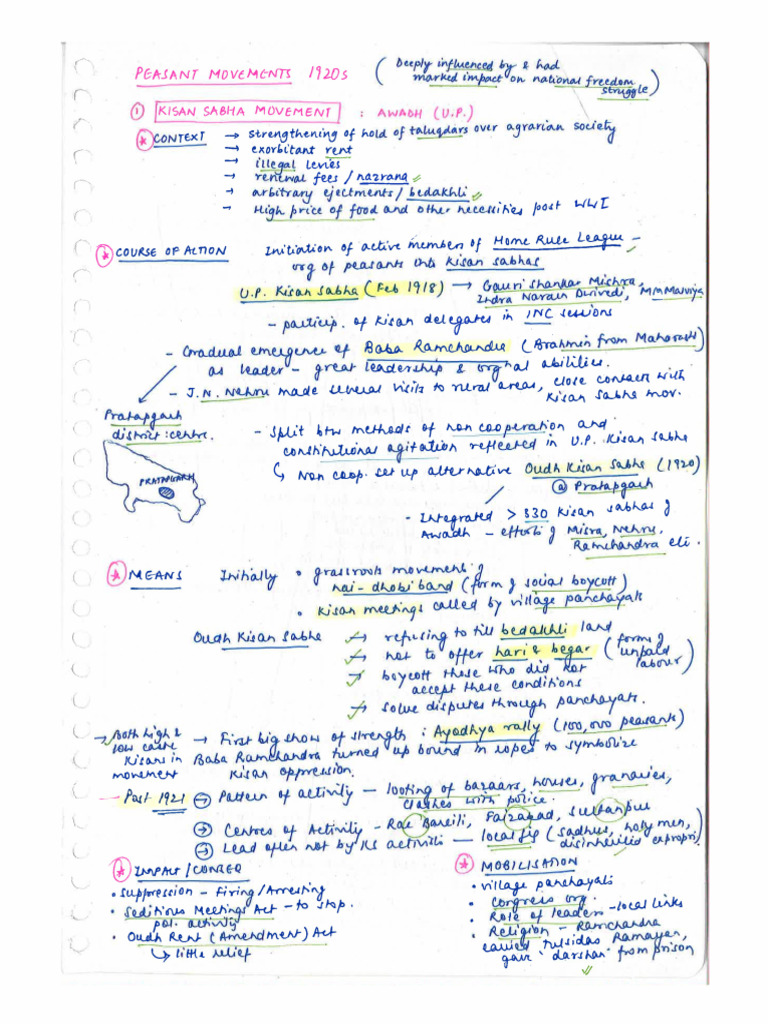 PEASANT MOVEMENTS 1920s (Deeply influenced by & had
marked impact on national freedom
struggle)
① KISAN SABHA MOVEMENT : AWADH (U.P.)
* CONTEXT → strengthening of hold of taluqdars over agrarian society
→ exorbitant rent
→ illegal levies
- renewal fees / nazrana
- arbitrary ejectments / bedakhli
- High price of food and other necessities post WWI
* COURSE OF ACTION Initiation of active members of Home Rule League -
org of peasants into Kisan sabhas
U.P. Kisan Sabha (Feb 1918) → Gauri Shankar Mishra,
Indra Narain Dwivedi, MM Malviya
- particip. of Kisan delegates in INC sessions
- Gradual emergence of Baba Ramchandra (Brahmin from Maharasht)
as leader - great leadership & orgnal abilities.
- J.N. Nehru made several visits to rural areas, close contact with
Kisan Sabha mov.
Pratapgarh
district : centre.
PRATAPGARH
- Split btw methods of non cooperation and
constitutional agitation reflected in U.P. Kisan Sabha
↳ Non coop. set up alternative Oudh Kisan Sabha (1920)
@ Pratapgarh
· Integrated > 330 Kisan sabhas of
Awadh - efforts of Misra, Nehru,
Ramchandra etc.
* MEANS Initially • grassroots movement of
nai-dhobi band (form of social boycott)
• Kisan meetings called by village panchayats
Oudh Kisan Sabha → refusing to till bedakhli land
→ not to offer hari & begar (forms of unpaid labour)
→ boycott those who did not
accept these conditions
→ solve disputes through panchayats.
→ Both high &
low caste
Kisans in
movement
→ First big show of strength : Ayodhya rally (100,000 peasants)
Baba Ramchandra turned up bound in ropes to symbolize
Kisan oppression.
- Post 1921 → Pattern of activity - looting of bazaars, houses, granaries,
clashes with police.
→ Centres of Activity - Rae Bareili, Faizabad, Sultanpur
→ Lead often not by KS activists - local fig (sadhus, holy men,
disinherited expropri.)
* IMPACT/CONSEQ
• Suppression - Firing/Arresting
• Seditious Meetings Act - to stop
pol. activity
• Oudh Rent (Amendment) Act
↳ little relief
* MOBILISATION
• village panchayats
• Congress org.
• Role of leaders - local links
• Religion - Ramchandra
carried Tulsidas Ramayan,
gave 'darshan' from prison